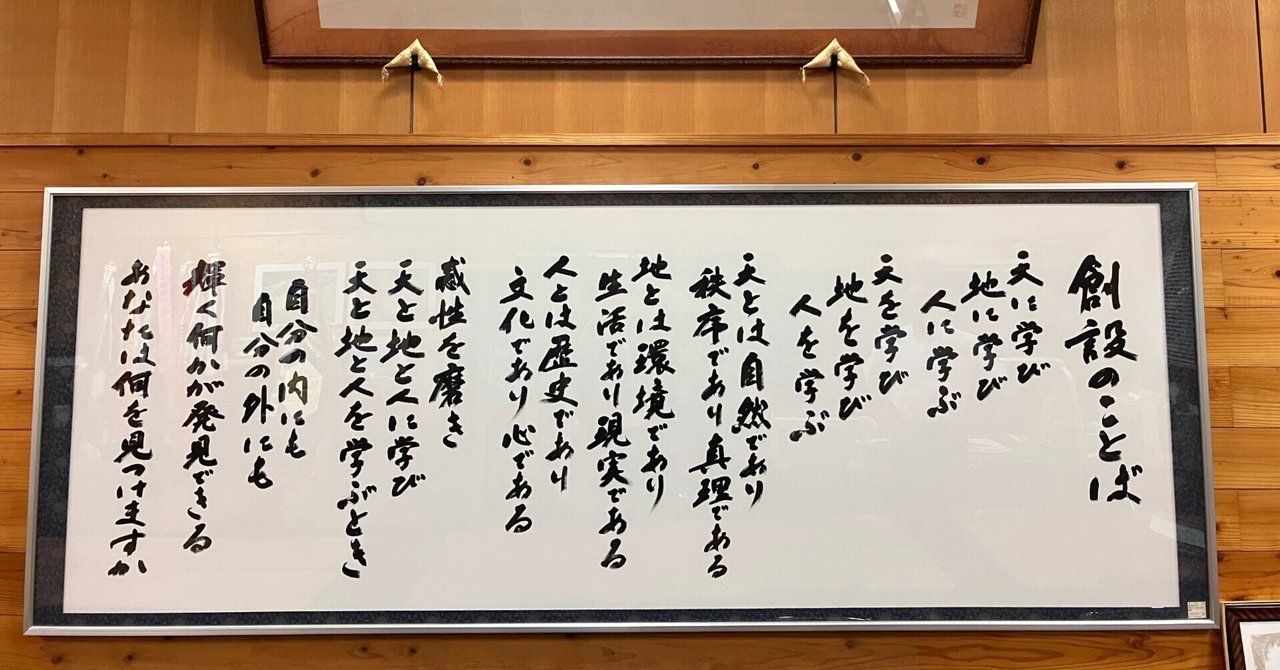 創設のことば
天に学び
地に学び
人に学ぶ
天を学び
地を学び
人を学ぶ
天とは自然であり
秩序であり真理である
地とは環境であり
生活であり現実である
人とは歴史であり
文化であり心である
感性を磨き
天と地と人に学び
天と地と人を学ぶとき
自分の内にも
自分の外にも
輝く何かが発見できる
あなたは何を見つけますか